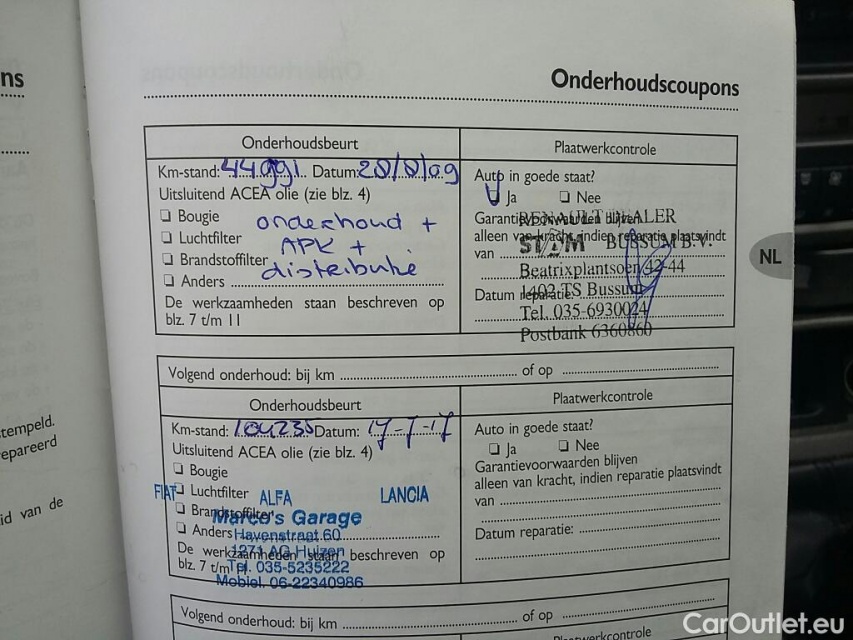 ns
Onderhoudscoupons
Onderhoudsbeurt
Plaatwerkcontrole
Km-stand: 44991 Datum: 28/8/09
Auto in goede staat?
Uitsluitend ACEA olie (zie blz. 4)
Ja Nee
Bougie
onderhoud +
Luchtfilter
APK +
Brandstoffilter
distributie
Anders
De werkzaamheden staan beschreven op
blz. 7 t/m 11
Garantievoorwaarden blijven
alleen van kracht, indien reparatie plaatsvindt
van
Datum reparatie:
RENAULT DEALER
STAM BUSSUM B.V.
Beatrixplantsoen 42-44
1402 TS Bussum
Tel. 035-6930024
Postbank 6360860
NL
Volgend onderhoud: bij km of op
Onderhoudsbeurt
Plaatwerkcontrole
Km-stand: 104235 Datum: 17-7-17
Auto in goede staat?
Uitsluitend ACEA olie (zie blz. 4)
Ja Nee
Bougie
Luchtfilter
Brandstoffilter
Anders
De werkzaamheden staan beschreven op
blz. 7 t/m 11
Garantievoorwaarden blijven
alleen van kracht, indien reparatie plaatsvindt
van
Datum reparatie:
FIAT ALFA LANCIA
Marco's Garage
Havenstraat 60
1271 AG Huizen
Tel. 035-5235222
Mobiel. 06-22340986
Volgend onderhoud: bij km of op
Plaatwerkcontrole
tempeld.
epareerd
id van de
CarOutlet.eu